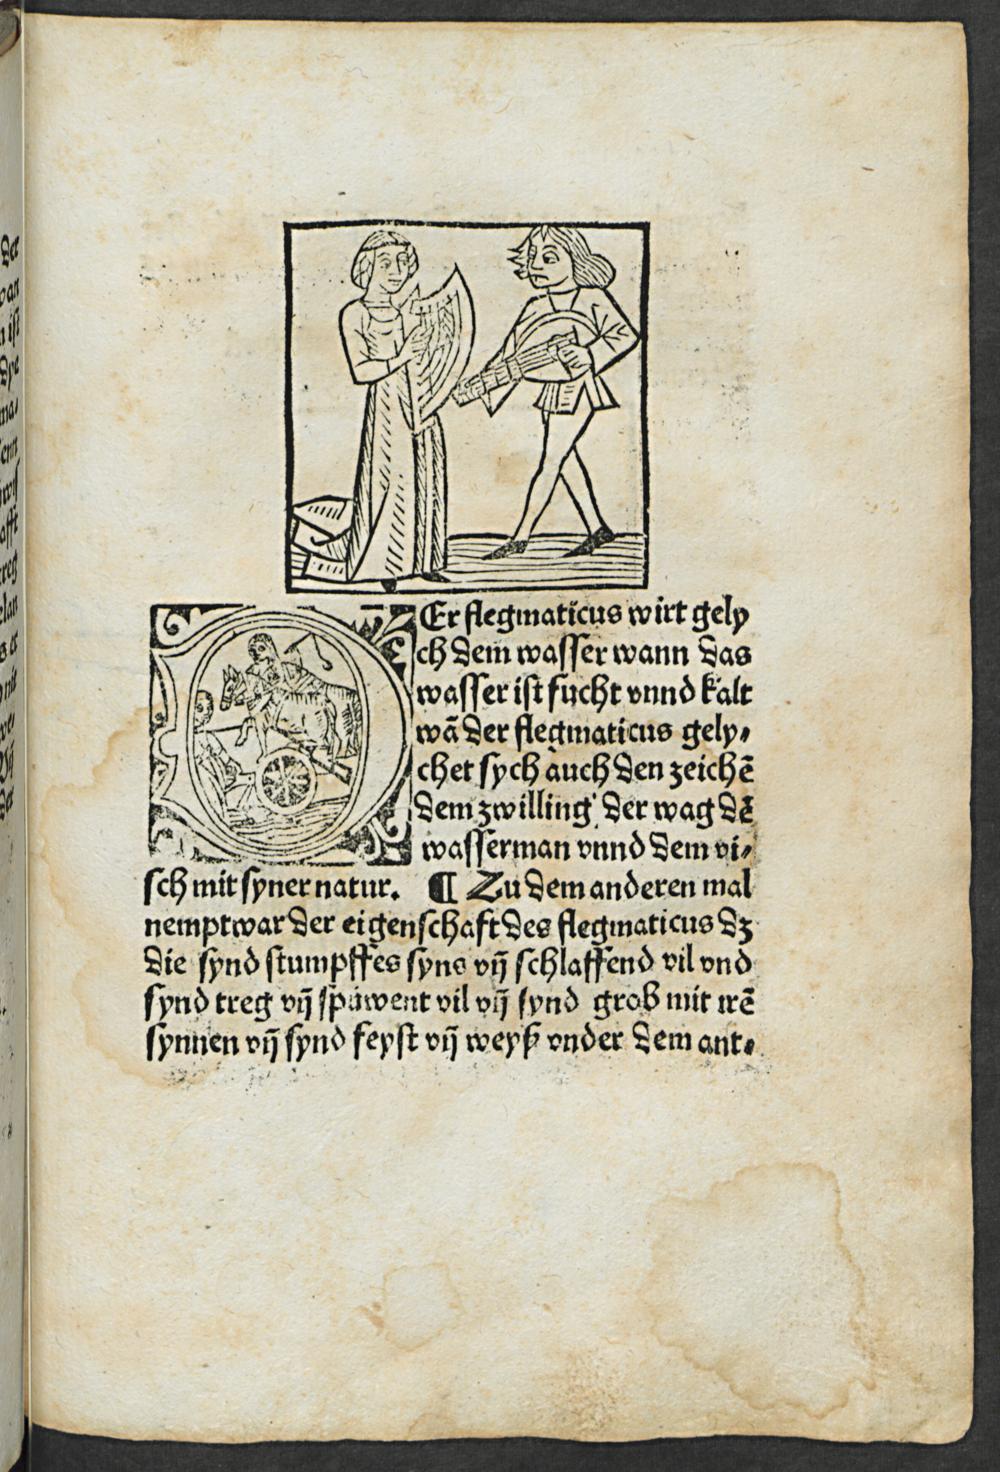 Der
van
n ist
Dye
ma⸗
enn
wist
afft
treg
elan
s er
nit
we
Vñ
Der
DEr flegmaticus wirt gely
ch dem wasser wann das
wasser ist fücht vnnd kalt
wā der flegmaticus gely⸗
chet sych auch den zeichē
dem zwilling der wag dē
wasserman vnnd dem vi⸗
sch mit syner natur. ¶ Zu dem anderen mal
nempt war der eigenschaft des flegmaticus dz
die synd stumpffes syns vñ schlaffend vil vnd
synd treg vñ spüwent vil vñ synd grob mit irē
synnen vñ synd feyst vñ weyß vnder dem ant⸗